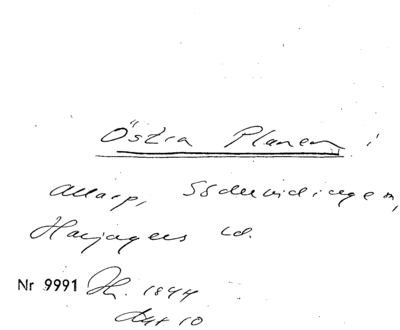 Östra Planen i
Allarp, Södervidingen,
Harjagers hd.
Nr 9991 Jh. 1844
Akt 10